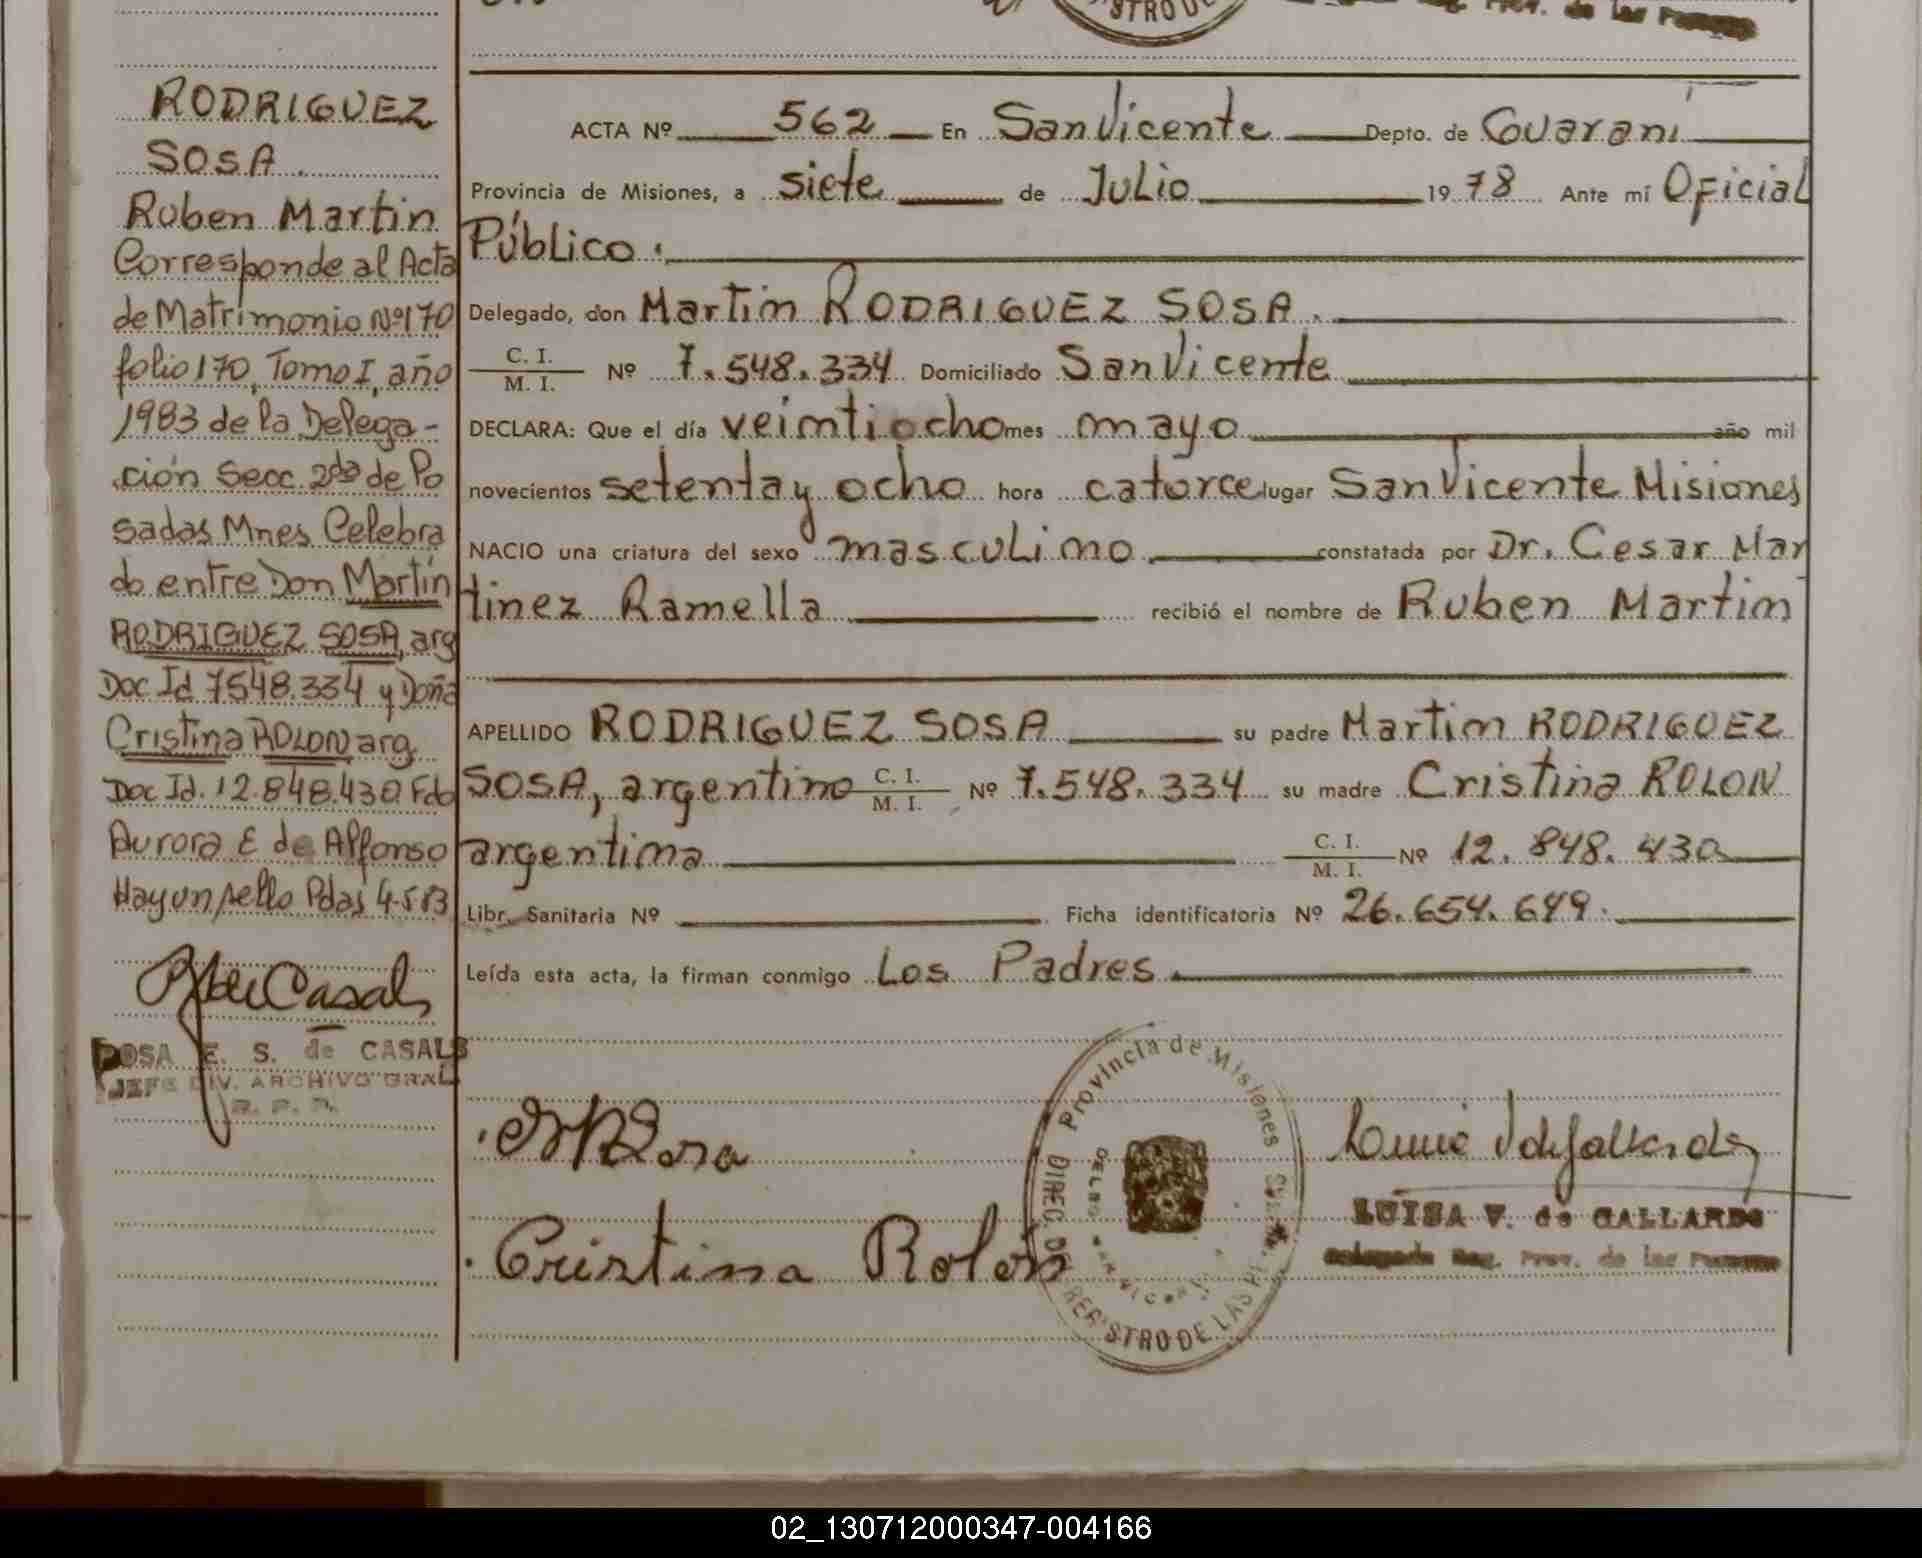 RODRIGUEZ
SOSA.
Ruben Martin
Corresponde al Acta
de Matrimonio Nº170
folio 170, Tomo I, año
1983 de la Delega-
ción Secc. 2da de Po
sadas Mnes Celebra
do entre Don Martín
RODRIGUEZ SOSA, arg
Doc Id 7548.334 y Doña
Cristina ROLON arg.
Doc Id. 12.848.430 Fdo
Aurora E de Alfonso
Hay un sello Pdas 4-5-83
ROSA E. S. de CASALS
JEFE DIV. ARCHIVO GRAL
R. P. P.
STRO DE
Prov. de las Personas
ACTA Nº 562 En San Vicente Depto. de Guaraní
Provincia de Misiones, a siete de Julio 1978 Ante mí Oficial
Público.
Delegado, don Martin RODRIGUEZ SOSA.
C. I.
M. I. Nº 7.548.334 Domiciliado San Vicente
DECLARA: Que el día veintiocho mes mayo año mil
novecientos setenta y ocho hora catorce lugar San Vicente Misiones
NACIO una criatura del sexo masculino constatada por Dr. Cesar Mar
tinez Ramella recibió el nombre de Ruben Martin
APELLIDO RODRIGUEZ SOSA su padre Martin RODRIGUEZ
SOSA, argentino C. I. M. I. Nº 7.548.334 su madre Cristina ROLON
argentina C. I. M. I. Nº 12.848.430
Libr. Sanitaria Nº Ficha identificatoria Nº 26.654.649.
Leída esta acta, la firman conmigo Los Padres
Provincia de Misiones
DIREC. DE REGISTRO DE LAS
Cristina Rolón
LUISA V. de GALLARDO
Delegada Reg. Prov. de las Personas
02_130712000347-004166